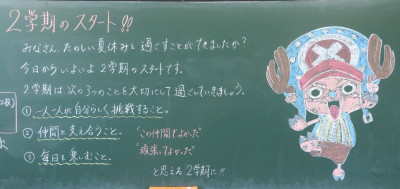 2学期のスタート!!
みなさん、たのしい夏休みを過ごすことができましたか?
今日からいよいよ2学期のスタートです。
2学期は次の3つのことを大切にして過ごしていきましょう。
①一人一人が自分らしく挑戦すること。
②仲間と支え合うこと。
③毎日を楽しむこと。
"この仲間でよかった"
"頑張ってよかった"
と思える2学期に!!